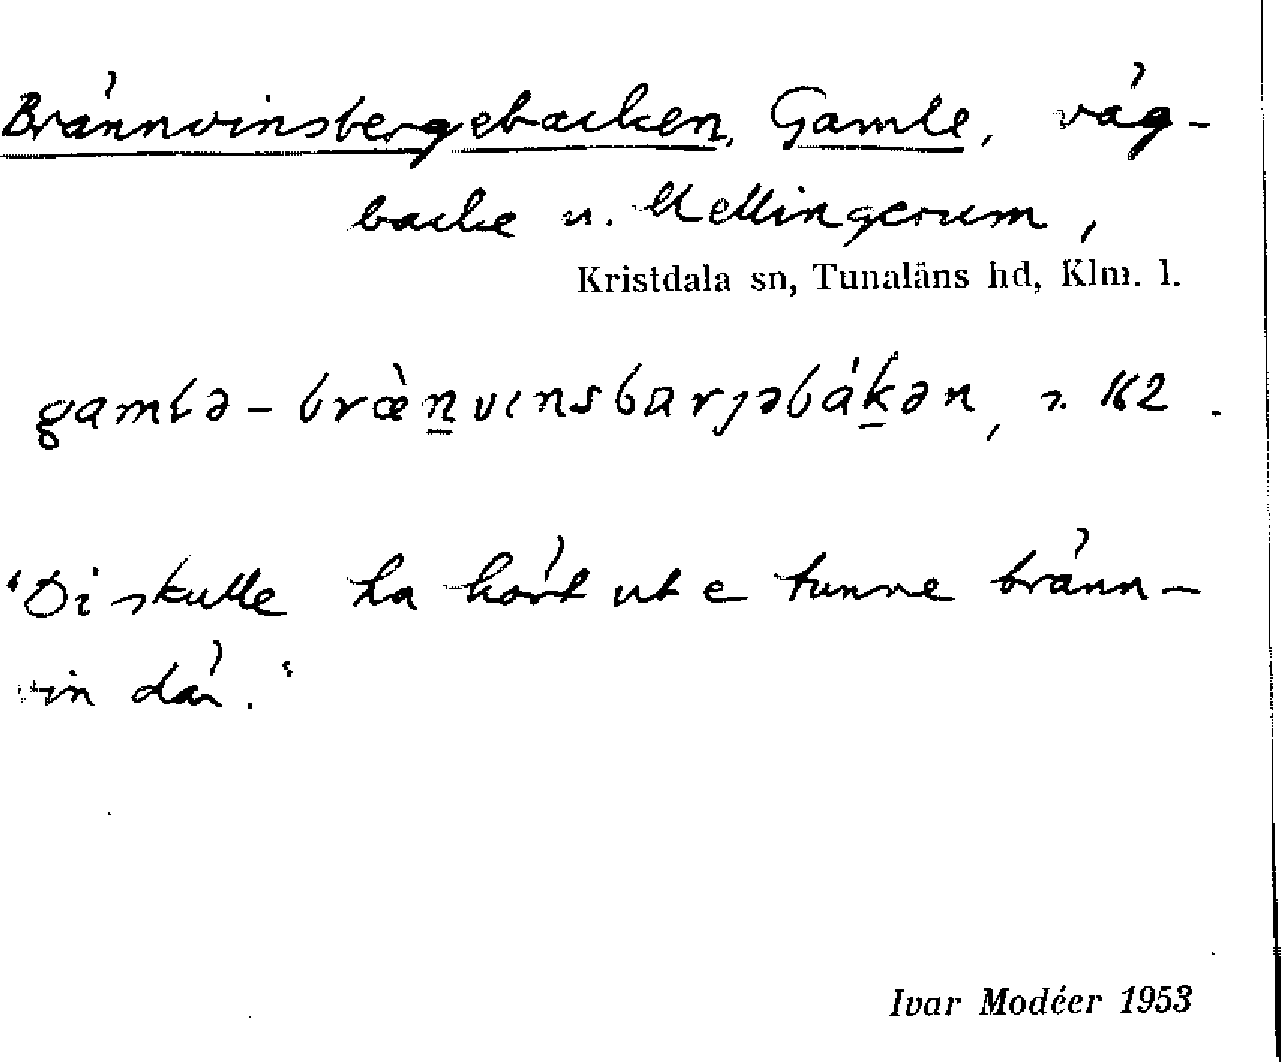 Brännvinsbergebacken, Gamle, väg-
backe u. Mellingerum,
Kristdala sn, Tunaläns hd, Klm. l.
gamlə - bræ̀n̠vɩnsbarȷəbák̠ən, 162.
"Di skulle ha kört ut e tunne bränn-
vin där."
Ivar Modéer 1953